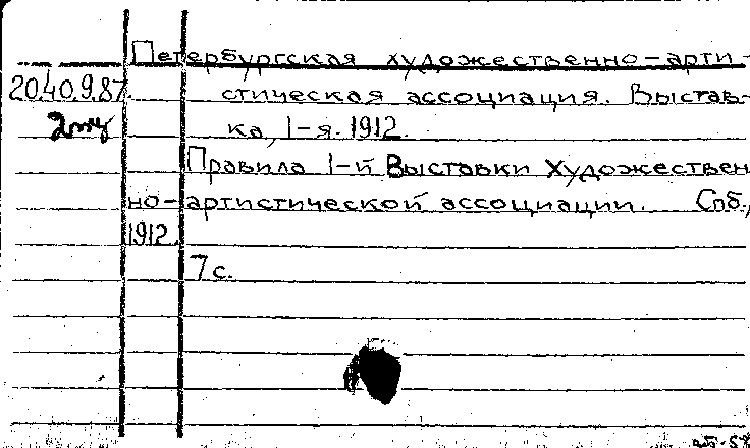 Петербургская художественно-арти-
20.40.9.87. стическая ассоциация. Выстав-
2экз ка, 1-я. 1912.
Правила 1-й Выставки Художествен
но-артистической ассоциации. Спб.,
1912.
7 с.